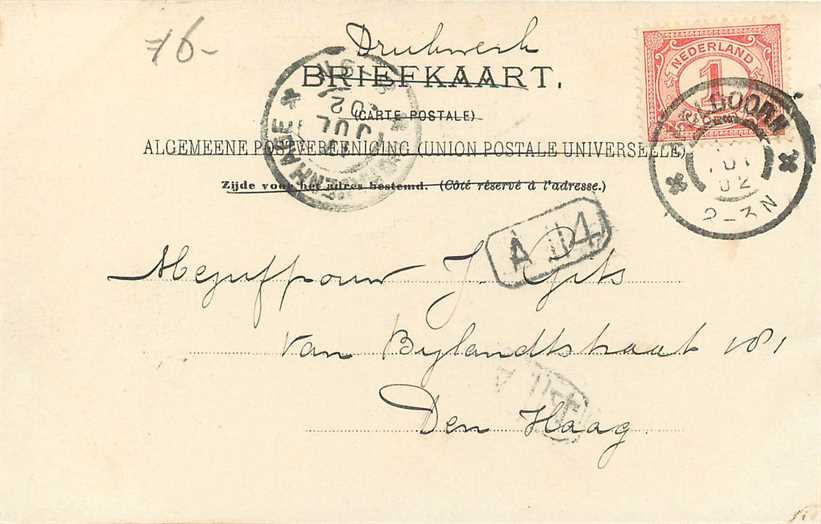 76-
Drukwerk
BRIEFKAART.
(CARTE POSTALE)
ALGEMEENE POSTVEREENIGING (UNION POSTALE UNIVERSELLE)
Zijde voor het adres bestemd. (Côté réservé à l'adresse.)
NEDERLAND
1
JUL
02
02
2-3N
Mejuffrouw J. Gips
van Bylandtstraat 181
Den Haag.